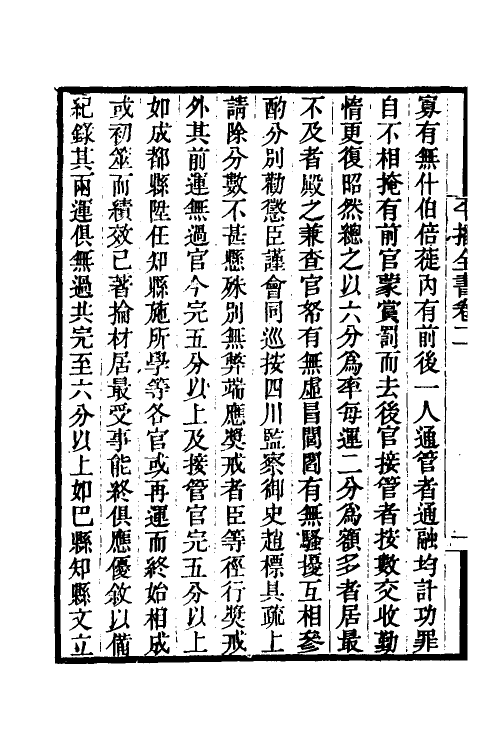 平播全書卷二
寡有無什伯倍蓰內有前後一人通管者通融均計功罪
自不相掩有前官蒙賞罰而去後官接管者按數交收勤
惰更復昭然總之以六分爲率每運二分爲額多者居最
不及者殿之兼查官帑有無虛冒閭閻有無騷擾互相參
酌分別勸懲臣謹會同巡按四川監察御史趙標具疏上
請除分數不甚懸殊別無弊端應獎戒者臣等徑行獎戒
外其前運無過官今完五分以上及接管官完五分以上
如成都縣陞任知縣施所學等各官或再運而終始相成
或初筮而績效已著掄材居最受事能終俱應優敘以備
紀錄其兩運俱無過共完至六分以上如巴縣知縣文立